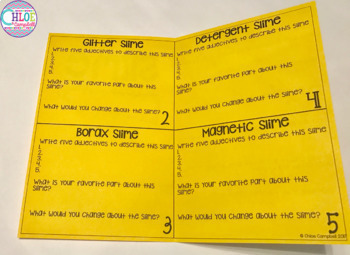 CHLOE
Campbell
Glitter Slime
Write five adjectives to describe this slime
1.
2.
3.
4.
5.
What is your favorite part about this
slime?
What would you change about the slime?
2
Detergent Slime
Write five adjectives to describe this slime
1.
2.
3.
4.
5.
What is your favorite part about this
slime?
What would you change about the slime?
4
Borax Slime
Write five adjectives to describe this slime
1.
2.
3.
4.
5.
What is your favorite part about this
slime?
What would you change about the slime?
3
Magnetic Slime
Write five adjectives to describe this slime
1.
2.
3.
4.
5.
What is your favorite part about this
slime?
What would you change about the slime?
5
© Chloe Campbell 2017